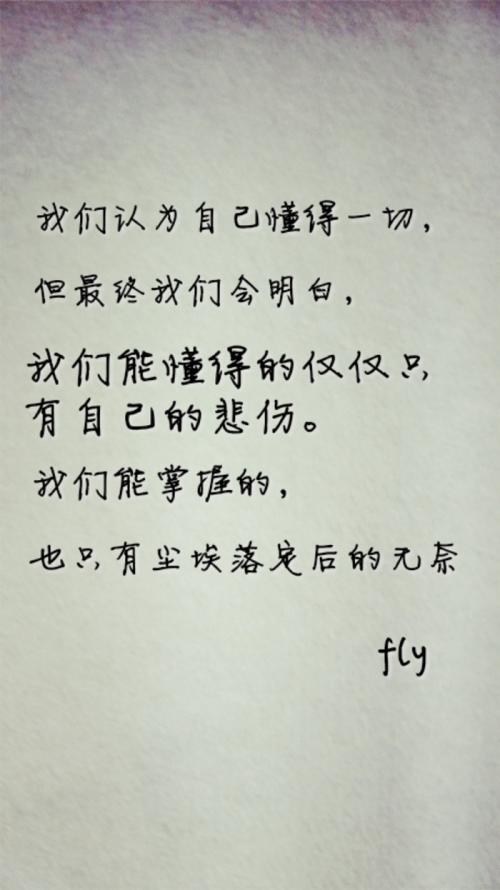 我们认为自己懂得一切，
但最终我们会明白，
我们能懂得的仅仅只
有自己的悲伤。
我们能掌握的，
也只有尘埃落定后的无奈
fly